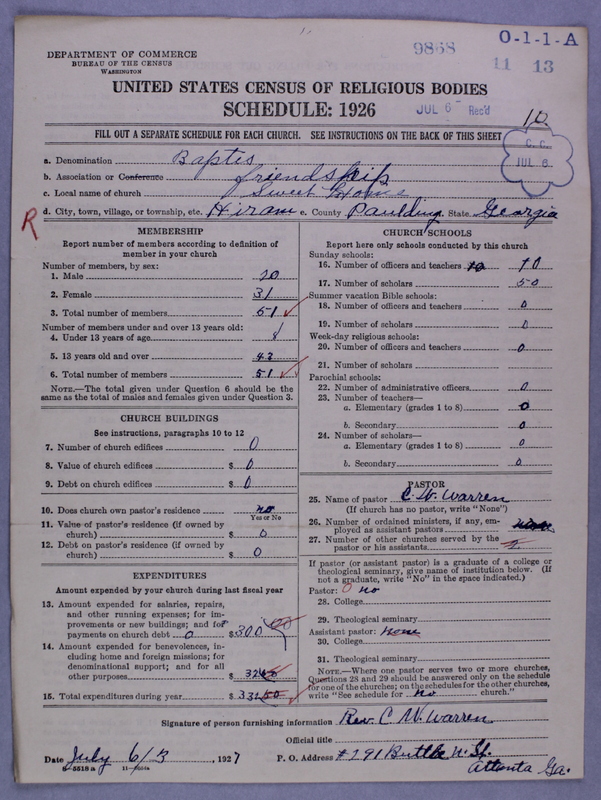 DEPARTMENT OF COMMERCE
BUREAU OF THE CENSUS
WASHINGTON
9868
O-1-1-A
11 13
UNITED STATES CENSUS OF RELIGIOUS BODIES
SCHEDULE: 1926
JUL 6 Rec'd
10
FILL OUT A SEPARATE SCHEDULE FOR EACH CHURCH. SEE INSTRUCTIONS ON THE BACK OF THIS SHEET
C. C.
JUL 6
a. Denomination Baptis
b. Association or Conference friendship
c. Local name of church Sweet Home
R
d. City, town, village, or township, etc. Hiram e. County Paulding State Georgia
MEMBERSHIP
Report number of members according to definition of member in your church
Number of members, by sex:
1. Male 20
2. Female 31
3. Total number of members 51
Number of members under and over 13 years old:
4. Under 13 years of age
5. 13 years old and over 43
6. Total number of members 51
NOTE.—The total given under Question 6 should be the same as the total of males and females given under Question 3.
CHURCH BUILDINGS
See instructions, paragraphs 10 to 12
7. Number of church edifices 0
8. Value of church edifices $ 0
9. Debt on church edifices $ 0
10. Does church own pastor's residence? no
Yes or No
11. Value of pastor's residence (if owned by church) $ 0
12. Debt on pastor's residence (if owned by church) $ 0
EXPENDITURES
Amount expended by your church during last fiscal year
13. Amount expended for salaries, repairs, and other running expenses; for improvements or new buildings; and for payments on church debt 0 $ 300
14. Amount expended for benevolences, including home and foreign missions; for denominational support; and for all other purposes
15. Total expenditures during year $
CHURCH SCHOOLS
Report here only schools conducted by this church
Sunday schools:
16. Number of officers and teachers 10 10
17. Number of scholars 50
Summer vacation Bible schools:
18. Number of officers and teachers 0
19. Number of scholars 0
Week-day religious schools:
20. Number of officers and teachers 0
21. Number of scholars
Parochial schools:
22. Number of administrative officers 0
23. Number of teachers—
a. Elementary (grades 1 to 8) 0
b. Secondary 0
24. Number of scholars—
a. Elementary (grades 1 to 8) 0
b. Secondary 0
PASTOR
25. Name of pastor C. W. Warren
(If church has no pastor, write "None")
26. Number of ordained ministers, if any, employed as assistant pastors
27. Number of other churches served by the pastor or his assistants 2
If pastor (or assistant pastor) is a graduate of a college or theological seminary, give name of institution below. (If not a graduate, write "No" in the space indicated.)
Pastor: 0 no
28. College
29. Theological seminary
Assistant pastor: none
30. College
31. Theological seminary
NOTE.—Where one pastor serves two or more churches, Questions 28 and 29 should be answered only on the schedule for one of the churches; on the schedules for the other churches, write "See schedule for no church."
Signature of person furnishing information Rev. C W. Warren
Official title
Date July 6/3, 1927 P. O. Address # 191 Butler St.
Atlanta Ga.